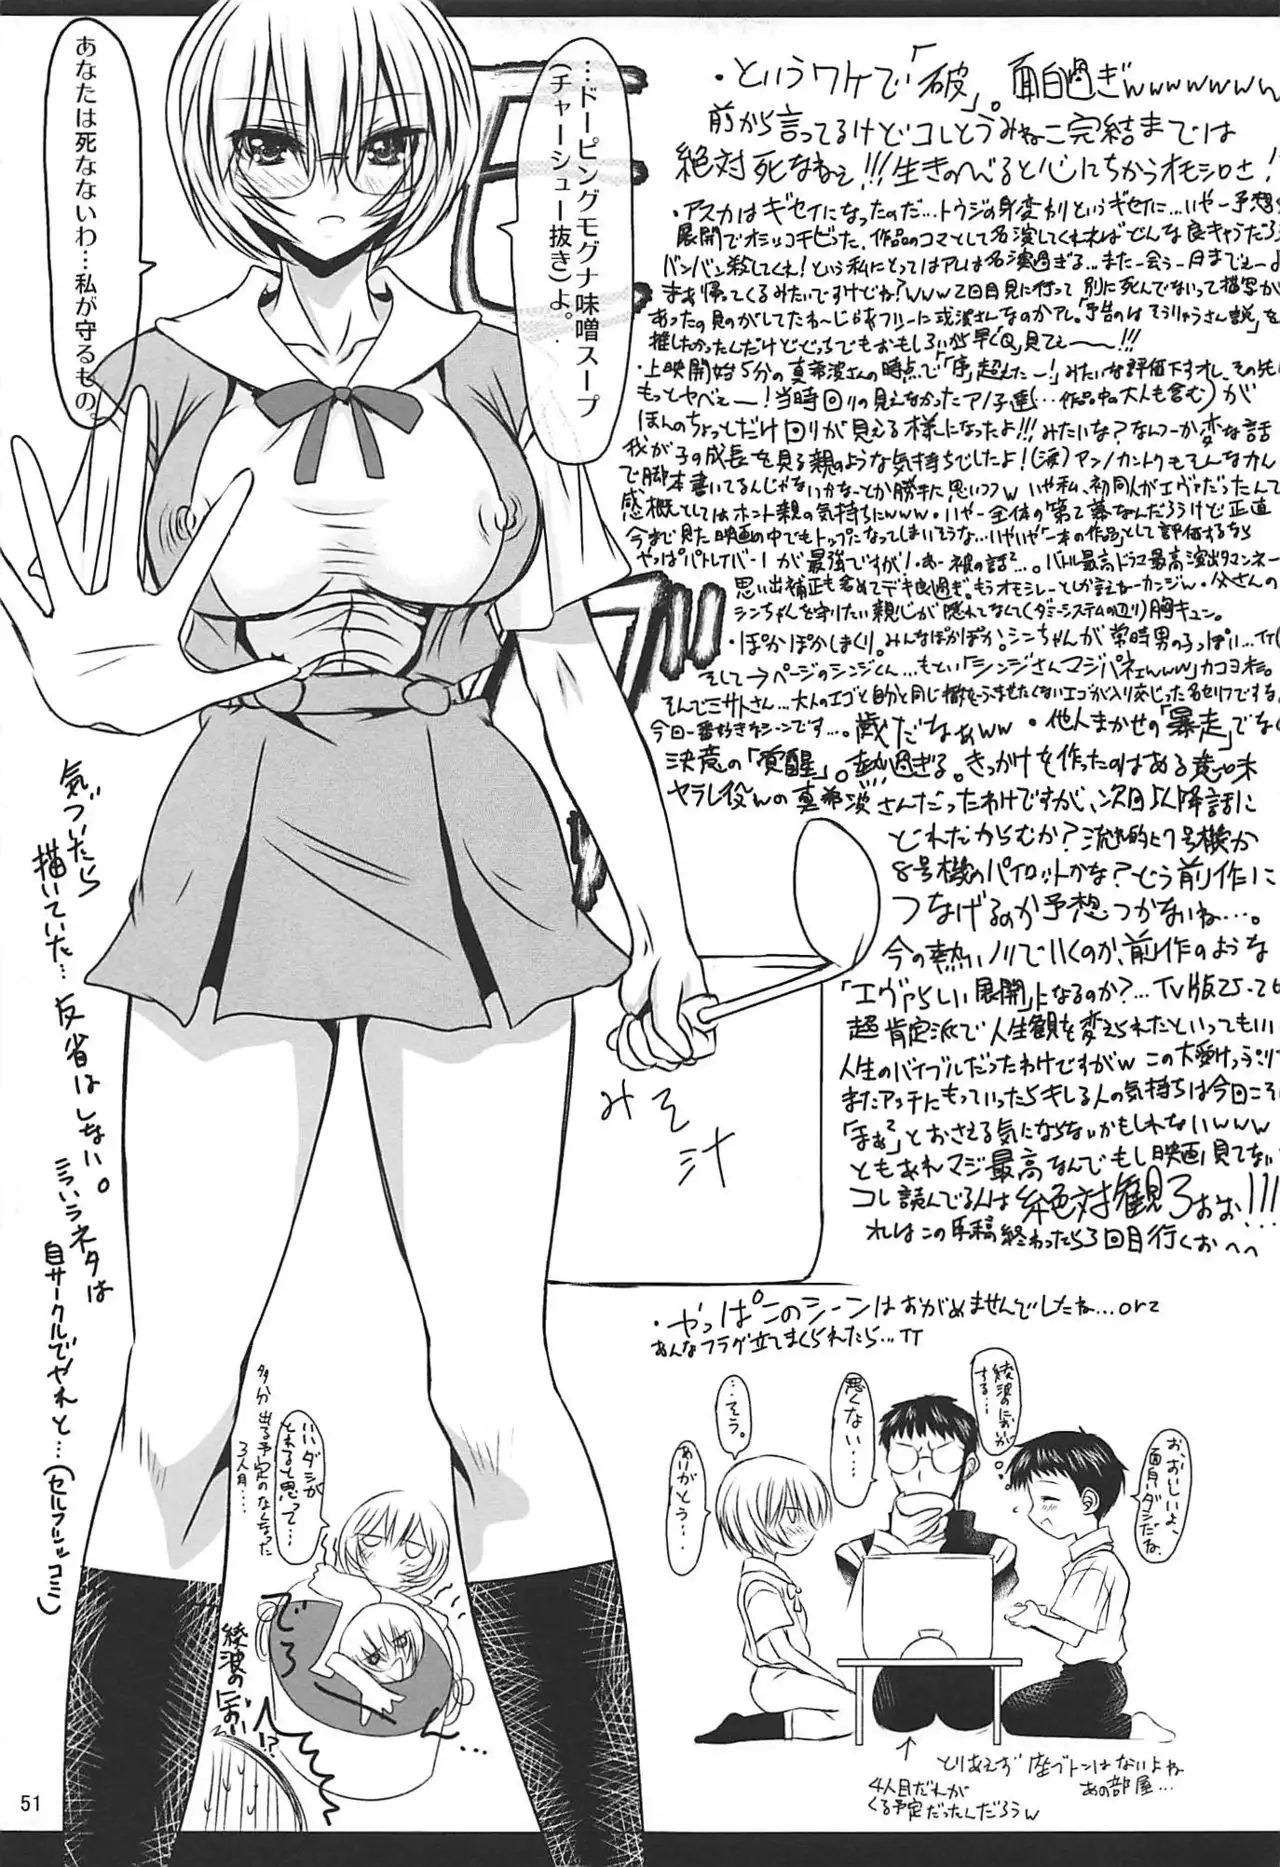 あなたは死なないわ…私が守るもの。
…ドーピングモグナ味噌スープ
(チャーシュー抜き)よ。
・というワケで「破」。面白過ぎwwwwwww
前から言ってるけどコレとうみねこ完結までは
絶対死なねぇ!!!生きのべると心にちかうオモシロさ!
・アスカはギセイになったのだ…トウジの身変りというギセイに…いやー予想
展開でオシッコチビった。作品のコマとして名演してくれればどんな良キャラだろう
バンバン殺してくれ!という私にとってはアレは名演過ぎる…また会う日までぇーよ
まぁ帰ってくるみたいですけどね?www2回目見に行って別に死んでないって描写が
あったの見のがしてたわ
推したかったんだけどどっちでもおもしろいから早く「Q」見てぇーーー!!!
・上映開始5分の真希波さんの時点で「「序」超えたー!」みたいな評価下すオレ、その先は
もっとヤベぇー!当時回りの見えなかったアノ子達(…作品中の大人も含む)が
ほんのちょっとだけ回りが見える様になったよ!!!みたいな?なんつーか変な話
我が子の成長を見る親のような気持ちでしたよ!(涙)アンノカントクもそんなかん
で脚本書いてるんじゃないかなーとか勝手に思いつつw いや私、初同人がエヴァだったんで
感概としてはホント親の気持ちにwww・いやー全体の第2幕なんだろうけど正直
今まで見た映画の中でもトップになってしまいそうな…いやいや「一本の作品」として評価するなら
やっぱパトレイバー1が最強ですが!・あー破の話²…。バトル最高ドラマ最高演出タマンネー
思い出補正も含めてデキ良過ぎ。もうオモシレーとしか言えねーカンジw・父さんの
シンちゃんを守りたい親心が隠れてなくて(ダミーシステムの辺り)胸キュン。
・ぽかぽかしまくり。みんなぽかぽか。シンちゃんが常時男の子っぽい…TT
そして→ページのシンジくん…もとい「シンジさんマジパネェwww」カコヨオ。
そんでミサトさん…大人のエゴと自分と同じ轍をふませたくないエゴが入り交じった名セリフですな
今回一番好きなシーンです…。歳だなぁww ・他人まかせの「暴走」でなく
決意の「覚醒」。熱過ぎる。きっかけを作ったのはある意味
ヤラレ役wの真希波さんだったわけですが、次回以降話に
どれだからむか?流れ的に7号機か
8号機のパイロットかな?どう前作に
つなげるのか予想つかないね…。
今の熱いノリでいくのか、前作のような
「エヴァらしい展開」になるのか?…TV版25-26
超肯定派で人生観を変えられたといってもいい
人生のバイブルだったわけですがw この大受けっぷり
またアッチにもっていったらキレる人の気持ちは今回こそ
「まぁ²」とおさえる気にならないかもしれないwww
ともあれマジ最高なんでもし映画見てない
コレ読んでる人は絶対観ろぉぉ!!!
れはこの原稿終わったら3回目行くおへへ
・やっぱこのシーンはおがめませんでしたね…orz
あんなフラグ立てまくられたら…TT
みそ
汁
気づいたら
描いていた…反省はしない。
こういうネタは
自サークルでやれと…(セルフツッコミ)
多分出る予定のなくなった
3人目…
いいダシが
とれると思って…
でろ〜ん
綾波の
におい!?
…そう。
ありがとう…
悪くない…
綾波のにおいが
する…
お、おいしいよ、
面白いダシだな。
↑
4人目だれが
くる予定だったんだろうw
とりあえず座ブトンはないよね
あの部屋…
51